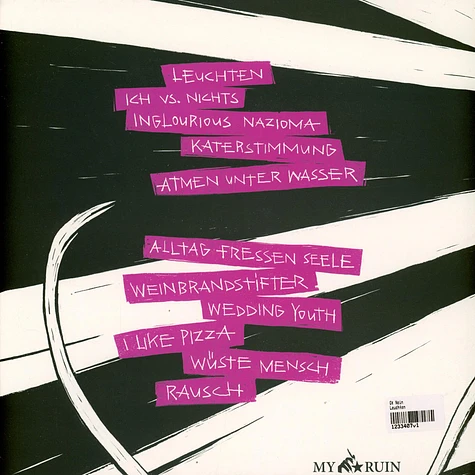 LEUCHTEN
ICH VS. NICHTS
INGLOURIOUS NAZIOMA
KATERSTIMMUNG
ATMEN UNTER WASSER
ALLTAG FRESSEN SEELE
WEINBRANDSTIFTER
WEDDING YOUTH
I LIKE PIZZA
WÜSTE MENSCH
RAUSCH
Oh Nein
Leuchten
1233407v1
MY RUIN